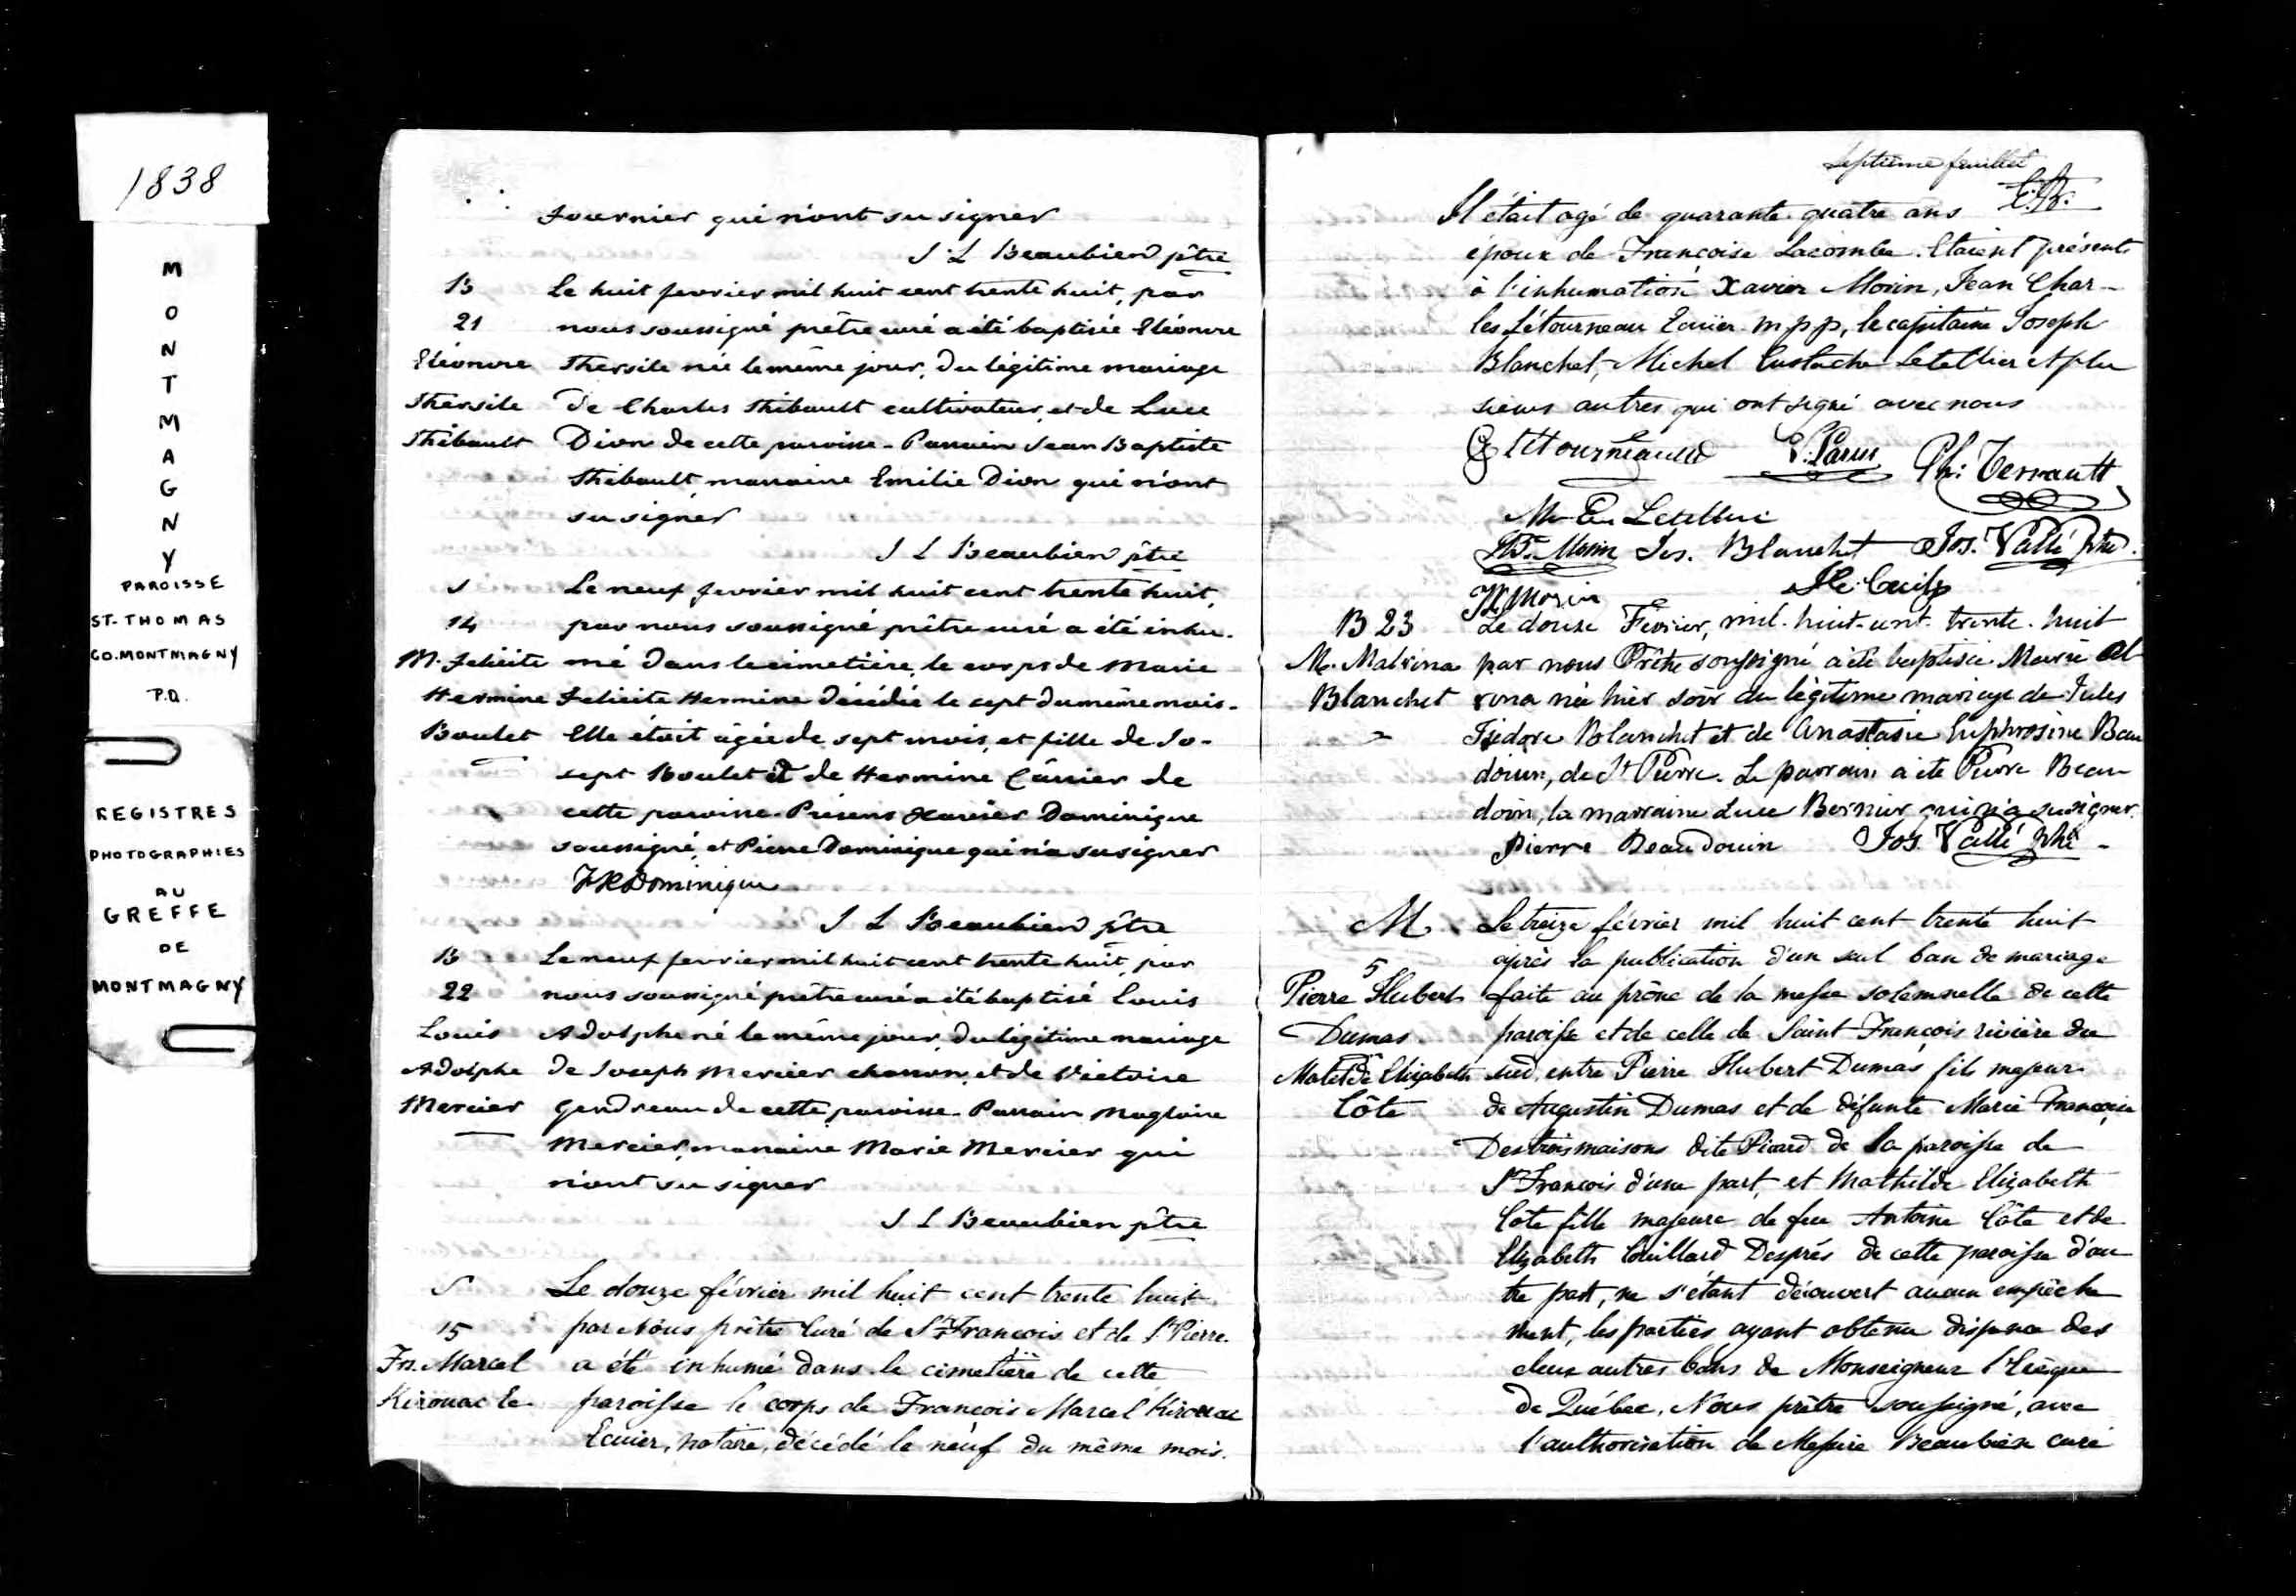 1838
M
O
N
T
M
A
G
N
Y
PAROISSE
ST-THOMAS
CO. MONTMAGNY
P.Q.
REGISTRES
PHOTOGRAPHIES
AU
GREFFE
DE
MONTMAGNY
fournier qui n'ont su signer
J L Beaubien ptre
B Le huit fevrier mil huit cent trente huit, par
21 nous soussigné prêtre curé a été baptisée Eléonore
Eléonore Thersile née le même jour, du légitime mariage
Thersile de Charles Thibault cultivateur, et de Luce
Thibault Dion de cette paroisse - Parrain Jean Baptiste
Thibault, marraine Emilie Dion qui n'ont
su signer
J L Beaubien ptre
S Le neuf fevrier mil huit cent trente huit,
14 par nous soussigné prêtre curé a été inhu-
M. Felicite mé dans le cimetière, le corps de Marie
Hermine Felicite Hermine décédée le sept du même mois.
Boulet Elle était agée de sept mois, et fille de Jo-
seph Boulet et de Hermine Carrier de
cette paroisse. Présens Xavier Dominique
soussigné, et Pierre Dominique qui n'a su signer
FX Dominique
J L Beaubien ptre
B Le neuf fevrier mil huit cent trente huit, par
22 nous soussigné prêtre curé a été baptisé Louis
Louis Adolphe né le même jour, du légitime mariage
Adolphe de Joseph Mercier charron, et de Victoire
Mercier Gendreau de cette paroisse - Parrain Magloire
Mercier, marraine Marie Mercier qui
n'ont su signer
J L Beaubien ptre
S Le douze février mil huit cent trente huit
15 par Nous prêtre Curé de St François et de St Pierre
Frs. Marcel a été inhumé dans le cimetière de cette
Kirouac Ec. paroisse le corps de François Marcel Kirouac
Ecuier, notaire, décédé le neuf du même mois.
Septième feuillet
Il était agé de quarante quatre ans
époux de Françoise Lacombe. Etaient présents
à l'inhumation Xavier Morin, Jean Char-
les Létourneau Ecuier. m.p.p, le capitaine Joseph
Blanchet, Michel Eustache Letellier et plu
sieurs autres qui ont signé avec nous
Létourneau Ph: Verrault
M. Eu Letellier
Morin Jos. Blanchet Jos. Vallé Ptre.
Morin
B 23 Le douze Février, mil-huit-cent-trente-huit
M. Malvina par nous Prêtre soussigné a été baptisée Marie Al
Blanchet vina née hier soir du légitime mariage de Jules
Isidore Blanchet et de Anastasie Euphrosine Beau
doin, de St Pierre. Le parrain a été Pierre Beau
doin, la marraine Luce Bernier qui n'a su signer.
Pierre Beaudouin Jos. Vallé Ptre
M Le treize février mil huit cent trente huit
5 après la publication d'un seul ban de mariage
Pierre Hubert faite au prône de la messe solemnelle de cette
Dumas. paroisse et de celle de Saint François rivière du
Matilde Elizabeth sud, entre Pierre Hubert Dumas fils majeur
Côte de Augustin Dumas et de défunte Marie Françoise
Destroismaisons dite Picard de la paroisse de
St François d'une part, et Mathilde Elizabeth
Côte fille majeure de feu Antoine Côte et de
Elizabeth Couillard Després de cette paroisse d'au
tre part, ne s'étant découvert aucun empêche
ment, les parties ayant obtenu dispense des
deux autres bans de Monseigneur l'Evêque
de Québec, Nous prêtre soussigné, avec
l'authorisation de Messire Beaubien curé